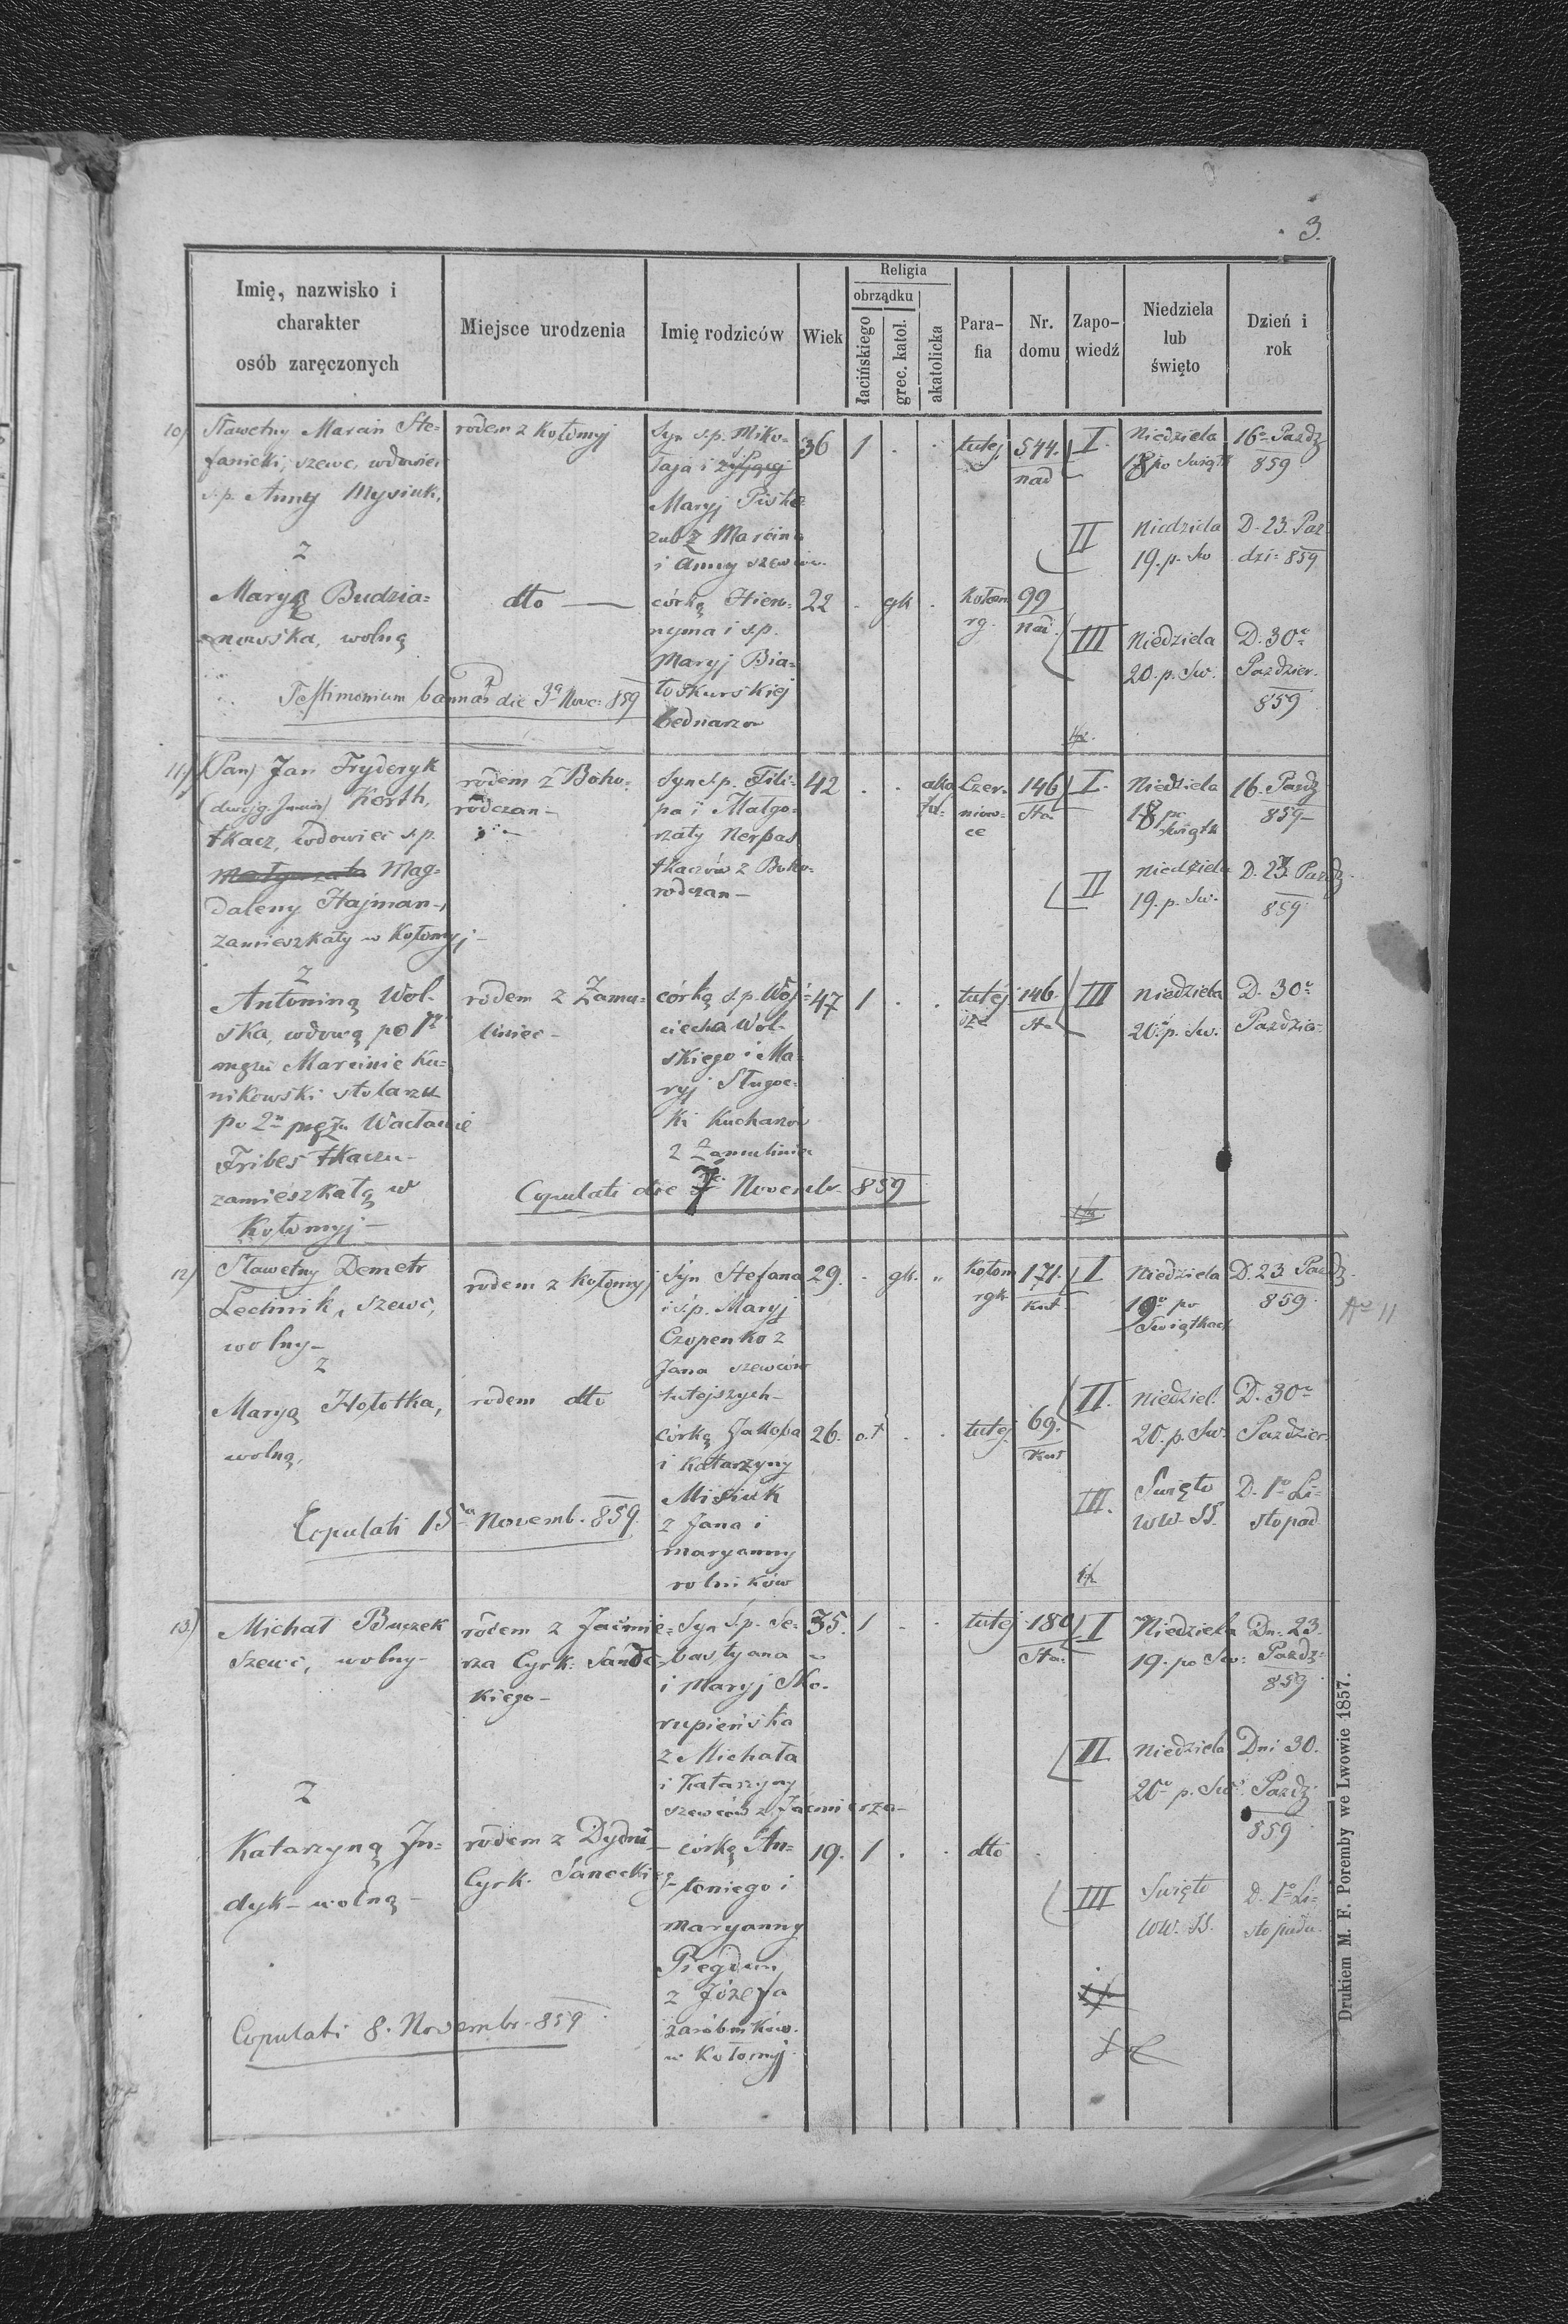 3.
Imię, nazwisko i
charakter
osób zaręczonych
Miejsce urodzenia
Imię rodziców
Wiek
Religia
obrządku
łacińskiego
grec. katol.
akatolicka
Para-
fia
Nr.
domu
Zapo-
wiedź
Niedziela
lub
święto
Dzień i
rok
10)
Sławetny Marcin Ste-
fanicki, szewc, wdowiec
s.p. Anny Mysiuk,
z
Maryą Budzia=
nowska, wolną
Testimonium bannor die 3a Nove: 859
rodem z Kołomyj
dto —
Syn s.p. Miko-
łaja i żyjącej
Maryj
zub z Marcina
i Anny szewców
córką Hiero-
nyma i s.p.
Maryj Bia=
łoskurskiej
bednarzow
36
1
22
gk
tutej
544.
nad
Kołom
rg.
99
nad.
I.
II
III
Niedziela
18 po Świąt
Niedziela
19. p. Św
Niedziela
20. p. Św.
16a Pazdz
859
D. 23. Paz
dzi= 859
D. 30a
Pazdzier.
859
11.)
(Pan) Jan Fryderyk
Korth,
tkacz, wdowiec s.p.
Małgorzata Mag-
daleny Hajman-,
zamieszkały w Kołomyj-
z
Antoniną Wol-
ska, wdową po 1m
mężu Marcinie Ku=
nikowski stolarzu
po 2m mężu Wacławie
Fribes tkaczu-
zamieszkałą w
Kołomyj-
rodem z Boho=
rodczan-
rodem z Zamu=
liniec-
Syn s.p. Fili-
pa i Małgo-
rzaty Nerbas
tkaczów z Boho-
rodczan-
córką s.p. Woj=
ciecha Wol-
skiego i Ma-
ryj Sługoc-
ki Kucharzow
z Zamuliniec
Copulati die 7 Novembr. 859
42
47
1
Czer-
niow-
ce
146
Sta
tutej
sza
146.
Sta
I.
II
III
Niedziela
18 po
Świątk
Niedziela
19. p. Św.
Niedziela
20a p. Św.
16. Pazdz
859-
D. 23. Pazdz.
859
D. 30a
Pazdzier
12)
Sławetny Demetr
Lechnik, szewc,
wolny-
z
Maryą Hołotka,
wolną.
Copulati 15a Novemb. 859.
rodem z Kołomyj
rodem dto
Syn Stefana
i s.p. Maryj
Czopenko z
Jana szewców
tutejszych-
córką Jakoba
i Katarzyny
Misiuk
z Jana i
maryanny
rolników
29.
gk.
26.
Kołom
rgk
171.
Kut
tutej
69.
Kut
I
II.
III.
Niedziela
19a po
Świątkach
Niedziel.
20. p. Św.
Święto
WW. SS.
D. 23 Pazdz.
859
D. 30a
Pazdzier.
D. 1o Li-
stopad
No 11
13.)
Michał Buczek
szewc, wolny-
z
Katarzyną In-
dyk- wolną-
Copulati 8. Novembr. 859
rodem z Jacmie-
rza Cyrk: Sandec-
kiego-
rodem z Dydni
Cyrk. Saneckieg
Syn s.p. Se-
bastyana
i Maryj Sko-
rupieńska
z Michała
i Katarzyny
szewców z Jacmierza-
córką An-
toniego i
maryanny
z Józefa
zarobników
w Kołomyj
35.
1
19.
1
tutej
180
Sta.
dto
I
II.
III
Niedziela
19. po Św:
Niedziela
20a p. Św.
Święto
WW. SS.
Dn. 23
Pazdz.
859
Dni 30.
Pazdz
859
D. 1o Li-
stopada.
Drukiem M. F. Poremby we Lwowie 1857.